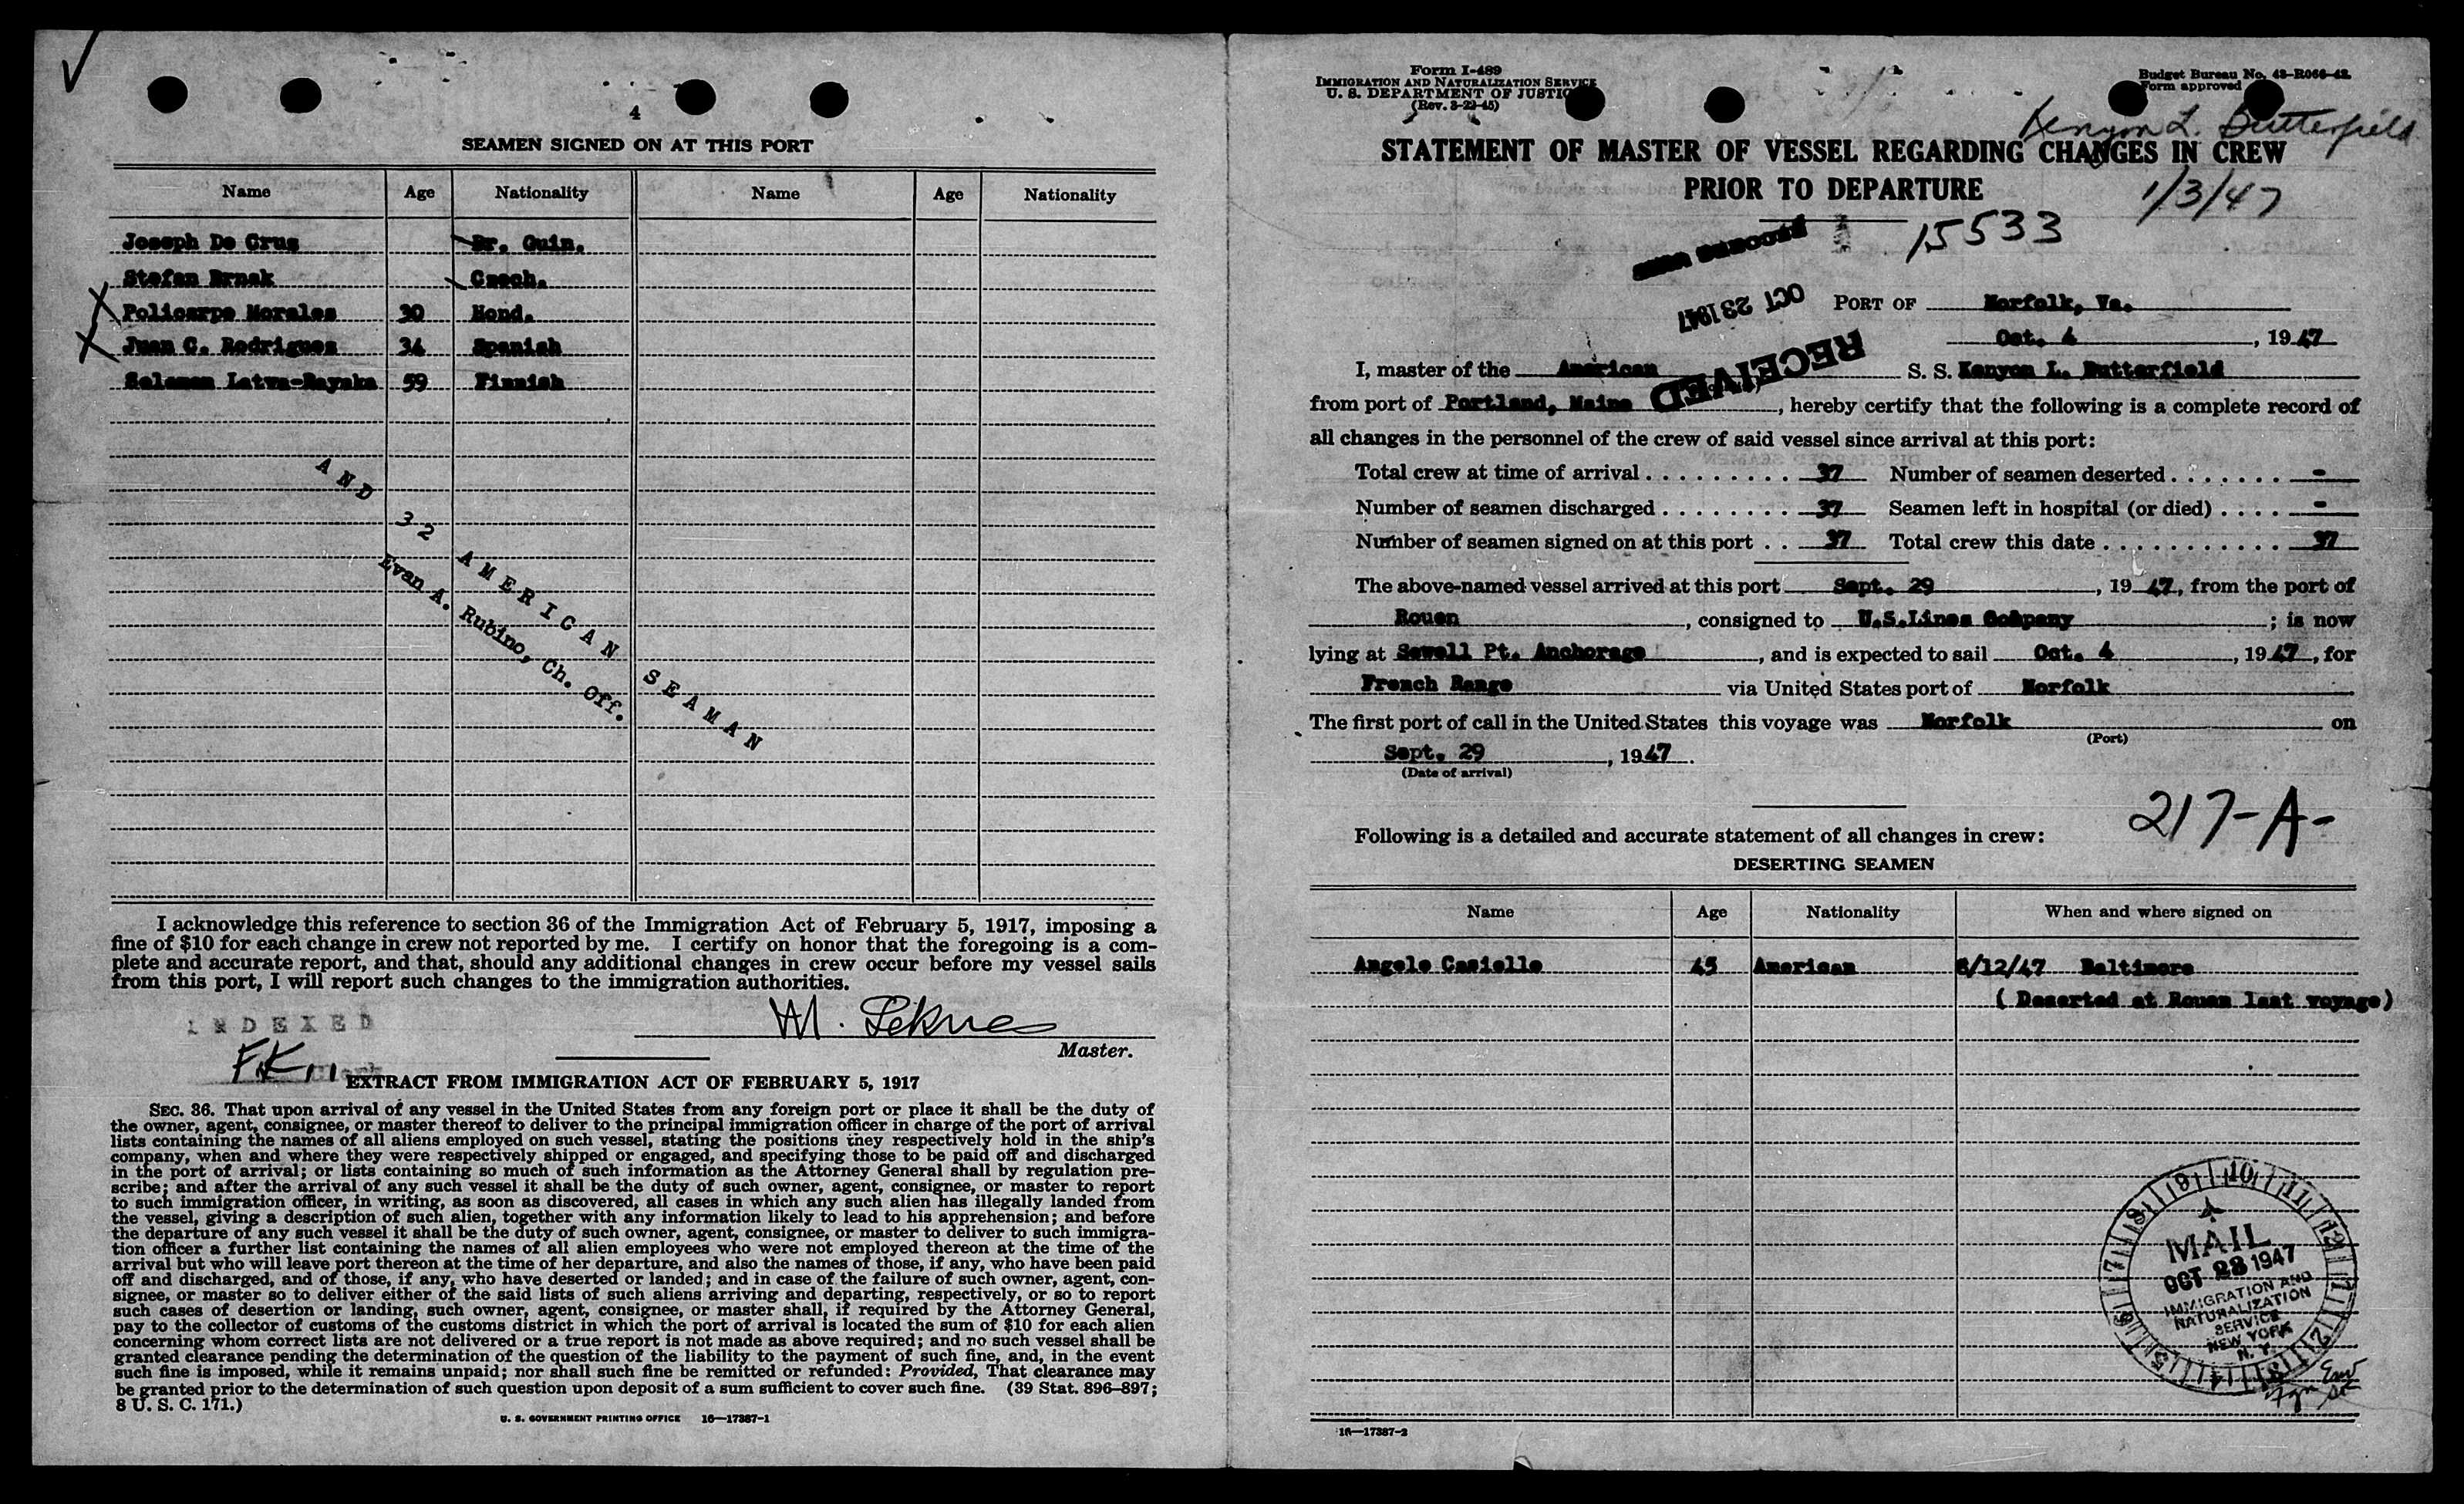 4
SEAMEN SIGNED ON AT THIS PORT
Name Age Nationality Name Age Nationality
Joseph De Crus Br. Guin.
Stefan Brnak Czech.
Policarpo Morales 30 Hond.
Juan C. Rodrigues 34 Spanish
Salomon Latva-Rayska 59 Finnish
AND 32 AMERICAN SEAMAN
Evan A. Rubino, Ch. Off.
I acknowledge this reference to section 36 of the Immigration Act of February 5, 1917, imposing a
fine of $10 for each change in crew not reported by me. I certify on honor that the foregoing is a com-
plete and accurate report, and that, should any additional changes in crew occur before my vessel sails
from this port, I will report such changes to the immigration authorities.
INDEXED
M.
Master.
F.K.
EXTRACT FROM IMMIGRATION ACT OF FEBRUARY 5, 1917
SEC. 36. That upon arrival of any vessel in the United States from any foreign port or place it shall be the duty of
the owner, agent, consignee, or master thereof to deliver to the principal immigration officer in charge of the port of arrival
lists containing the names of all aliens employed on such vessel, stating the positions they respectively hold in the ship's
company, when and where they were respectively shipped or engaged, and specifying those to be paid off and discharged
in the port of arrival; or lists containing so much of such information as the Attorney General shall by regulation pre-
scribe; and after the arrival of any such vessel it shall be the duty of such owner, agent, consignee, or master to report
to such immigration officer, in writing, as soon as discovered, all cases in which any such alien has illegally landed from
the vessel, giving a description of such alien, together with any information likely to lead to his apprehension; and before
the departure of any such vessel it shall be the duty of such owner, agent, consignee, or master to deliver to such immigra-
tion officer a further list containing the names of all alien employees who were not employed thereon at the time of the
arrival but who will leave port thereon at the time of her departure, and also the names of those, if any, who have been paid
off and discharged, and of those, if any, who have deserted or landed; and in case of the failure of such owner, agent, con-
signee, or master so to deliver either of the said lists of such aliens arriving and departing, respectively, or so to report
such cases of desertion or landing, such owner, agent, consignee, or master shall, if required by the Attorney General,
pay to the collector of customs of the customs district in which the port of arrival is located the sum of $10 for each alien
concerning whom correct lists are not delivered or a true report is not made as above required; and no such vessel shall be
granted clearance pending the determination of the question of the liability to the payment of such fine, and, in the event
such fine is imposed, while it remains unpaid; nor shall such fine be remitted or refunded: Provided, That clearance may
be granted prior to the determination of such question upon deposit of a sum sufficient to cover such fine. (39 Stat. 896–897;
8 U. S. C. 171.)
U. S. GOVERNMENT PRINTING OFFICE 16—17387-1
Form I-489
IMMIGRATION AND NATURALIZATION SERVICE
U. S. DEPARTMENT OF JUSTICE
(Rev. 3-22-45)
Budget Bureau No. 43-R066-42.
Form approved
Kenyon L. Butterfield
STATEMENT OF MASTER OF VESSEL REGARDING CHANGES IN CREW
PRIOR TO DEPARTURE
1/3/47
15533
RECEIVED
OCT 23 1947
PORT OF Norfolk, Va.
Oct. 4, 1947
I, master of the American S. S. Kenyon L. Butterfield
from port of Portland, Maine, hereby certify that the following is a complete record of
all changes in the personnel of the crew of said vessel since arrival at this port:
Total crew at time of arrival 37 Number of seamen deserted -
Number of seamen discharged 37 Seamen left in hospital (or died) -
Number of seamen signed on at this port 37 Total crew this date 37
The above-named vessel arrived at this port Sept. 29, 1947, from the port of
Rouen, consigned to U.S.Lines Company; is now
lying at Sewell Pt. Anchorage, and is expected to sail Oct. 4, 1947, for
French Range via United States port of Norfolk
The first port of call in the United States this voyage was Norfolk on
(Port)
Sept. 29, 1947.
(Date of arrival)
217-A-
Following is a detailed and accurate statement of all changes in crew:
DESERTING SEAMEN
Name Age Nationality When and where signed on
Angelo Casiello 45 American 8/12/47 Baltimore
( Deserted at Rouen last voyage)
MAIL
OCT 23 1947
IMMIGRATION AND
NATURALIZATION
SERVICE
NEW YORK
N. Y.
16—17387-2